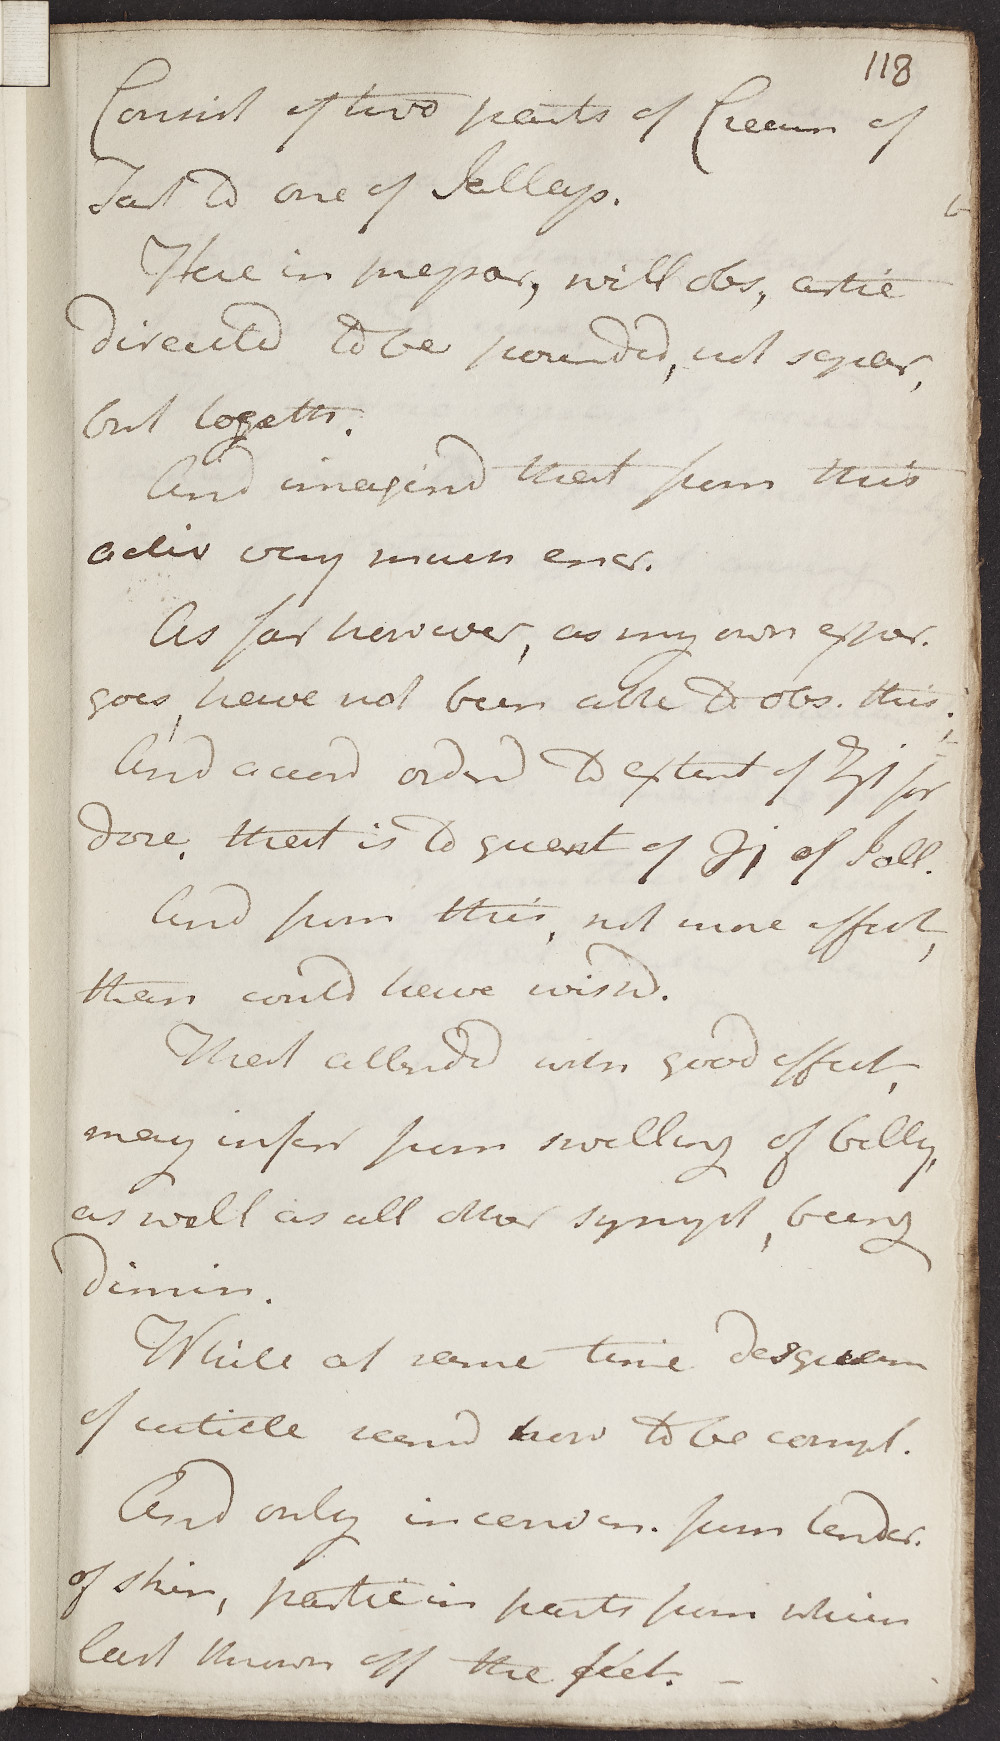 118
Consist of two parts of Cream of
Tart to one of Jallap.
Here in prepar, will obs, artic
directed to be pounded, not separ,
but togeth.
And imagind that from this
activ very much encr.
As far however, as my own exper.
goes, have not been able to obs. this.
And accord orderd to extent of ʒjſ for
dose, that is to quant of ʒj of Jall.
And from this, not more effect,
than could have wishd.
That attended with good effect,
may infer from swelling of belly,
as well as all other sympt, being
dimin.
While at same time desquam
of cuticle seemd now to be compl.
And only inconven. from tender.
of skin, partic in parts from which
last thrown off the feet. –